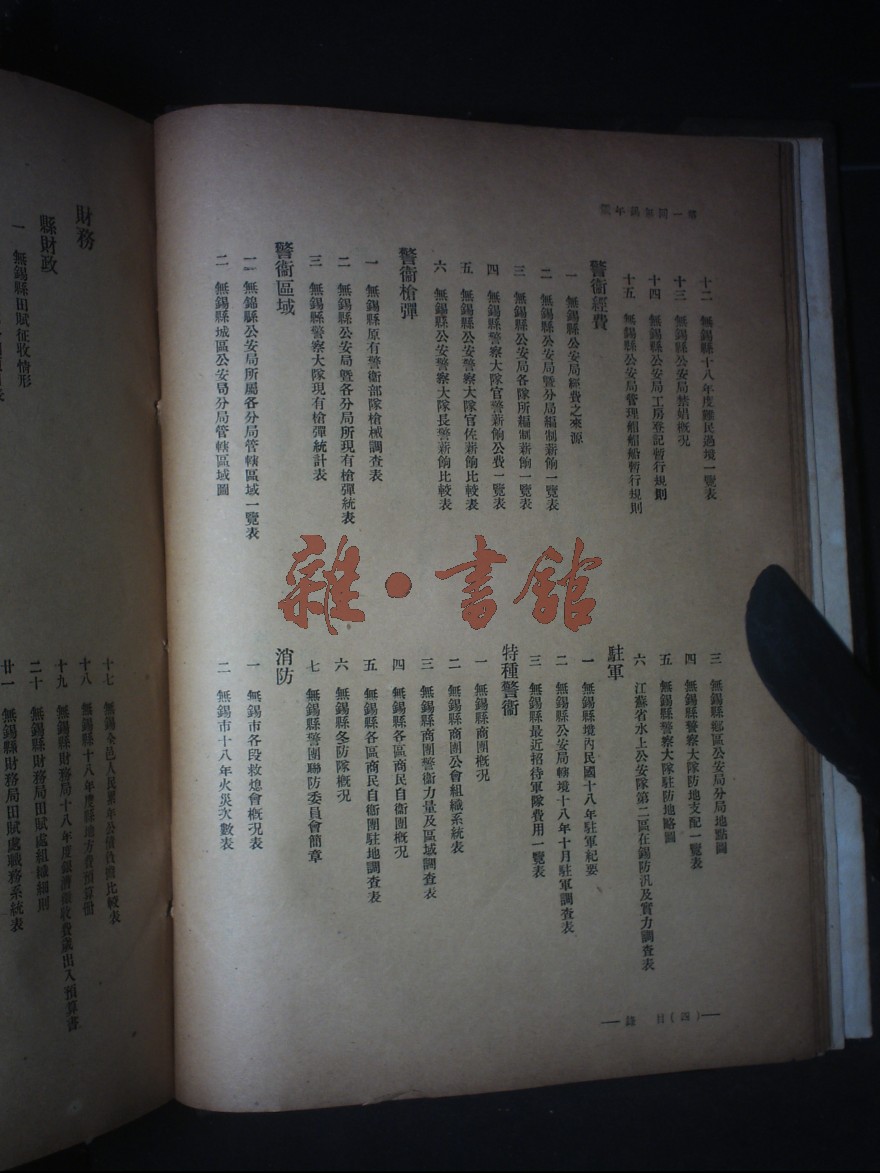 第一回無錫年鑑
十二　無錫縣十八年度難民過境一覽表
十三　無錫縣公安局禁娼概況
十四　無錫縣公安局工房登記暫行規則
十五　無錫縣公安局管理船舶暫行規則
警衞經費
一　無錫縣公安局經費之來源
二　無錫縣公安局暨分局編制薪餉一覽表
三　無錫縣公安局各隊所編制薪餉一覽表
四　無錫縣警察大隊官警薪餉公費一覽表
五　無錫縣公安警察大隊官佐薪餉比較表
六　無錫縣公安警察大隊長警薪餉比較表
警衞槍彈
一　無錫縣原有警衞部隊槍械調查表
二　無錫縣公安局暨各分局所現有槍彈統表
三　無錫縣警察大隊現有槍彈統計表
警衞區域
一　無錫縣公安局所屬各分局管轄區域一覽表
二　無錫縣城區公安局分局管轄區域圖
三　無錫縣鄉區公安局分局地點圖
四　無錫縣警察大隊防地支配一覽表
五　無錫縣警察大隊駐防地略圖
六　江蘇省水上公安隊第二區在錫防汛及實力調查表
駐軍
一　無錫縣境內民國十八年駐軍紀要
二　無錫縣公安局轄境十八年十月駐軍調查表
三　無錫縣最近招待軍隊費用一覽表
特種警衞
一　無錫縣商團概況
二　無錫縣商團公會組織系統表
三　無錫縣商團警衞力量及區域調查表
四　無錫縣各區商民自衞團概況
五　無錫縣各區商民自衞團駐地調查表
六　無錫縣冬防隊概況
七　無錫縣警團聯防委員會簡章
消防
一　無錫市各段救熄會概況表
二　無錫市十八年火災次數表
目錄（四）
雜·書館
財務
縣財政
一　無錫縣田賦征收情形
十七　無錫全邑人民累年公債負擔比較表
十八　無錫縣十八年度縣地方費預算冊
十九　無錫縣財務局十八年度徵收費歲出入預算書
二十　無錫縣財務局田賦處組織細則
廿一　無錫縣財務局田賦處職務系統表